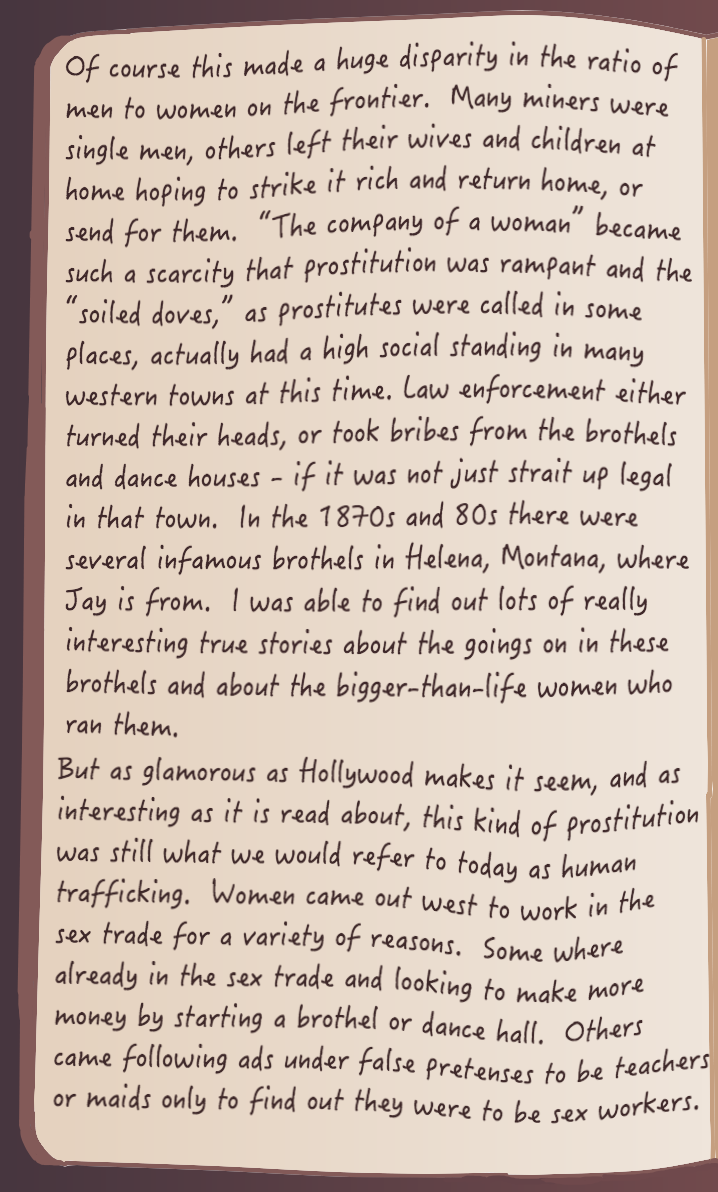 Of course this made a huge disparity in the ratio of
men to women on the frontier. Many miners were
single men, others left their wives and children at
home hoping to strike it rich and return home, or
send for them. “The company of a woman” became
such a scarcity that prostitution was rampant and the
“soiled doves,” as prostitutes were called in some
places, actually had a high social standing in many
western towns at this time. Law enforcement either
turned their heads, or took bribes from the brothels
and dance houses - if it was not just strait up legal
in that town. In the 1870s and 80s there were
several infamous brothels in Helena, Montana, where
Jay is from. I was able to find out lots of really
interesting true stories about the goings on in these
brothels and about the bigger-than-life women who
ran them.
But as glamorous as Hollywood makes it seem, and as
interesting as it is read about, this kind of prostitution
was still what we would refer to today as human
trafficking. Women came out west to work in the
sex trade for a variety of reasons. Some where
already in the sex trade and looking to make more
money by starting a brothel or dance hall. Others
came following ads under false pretenses to be teachers
or maids only to find out they were to be sex workers.